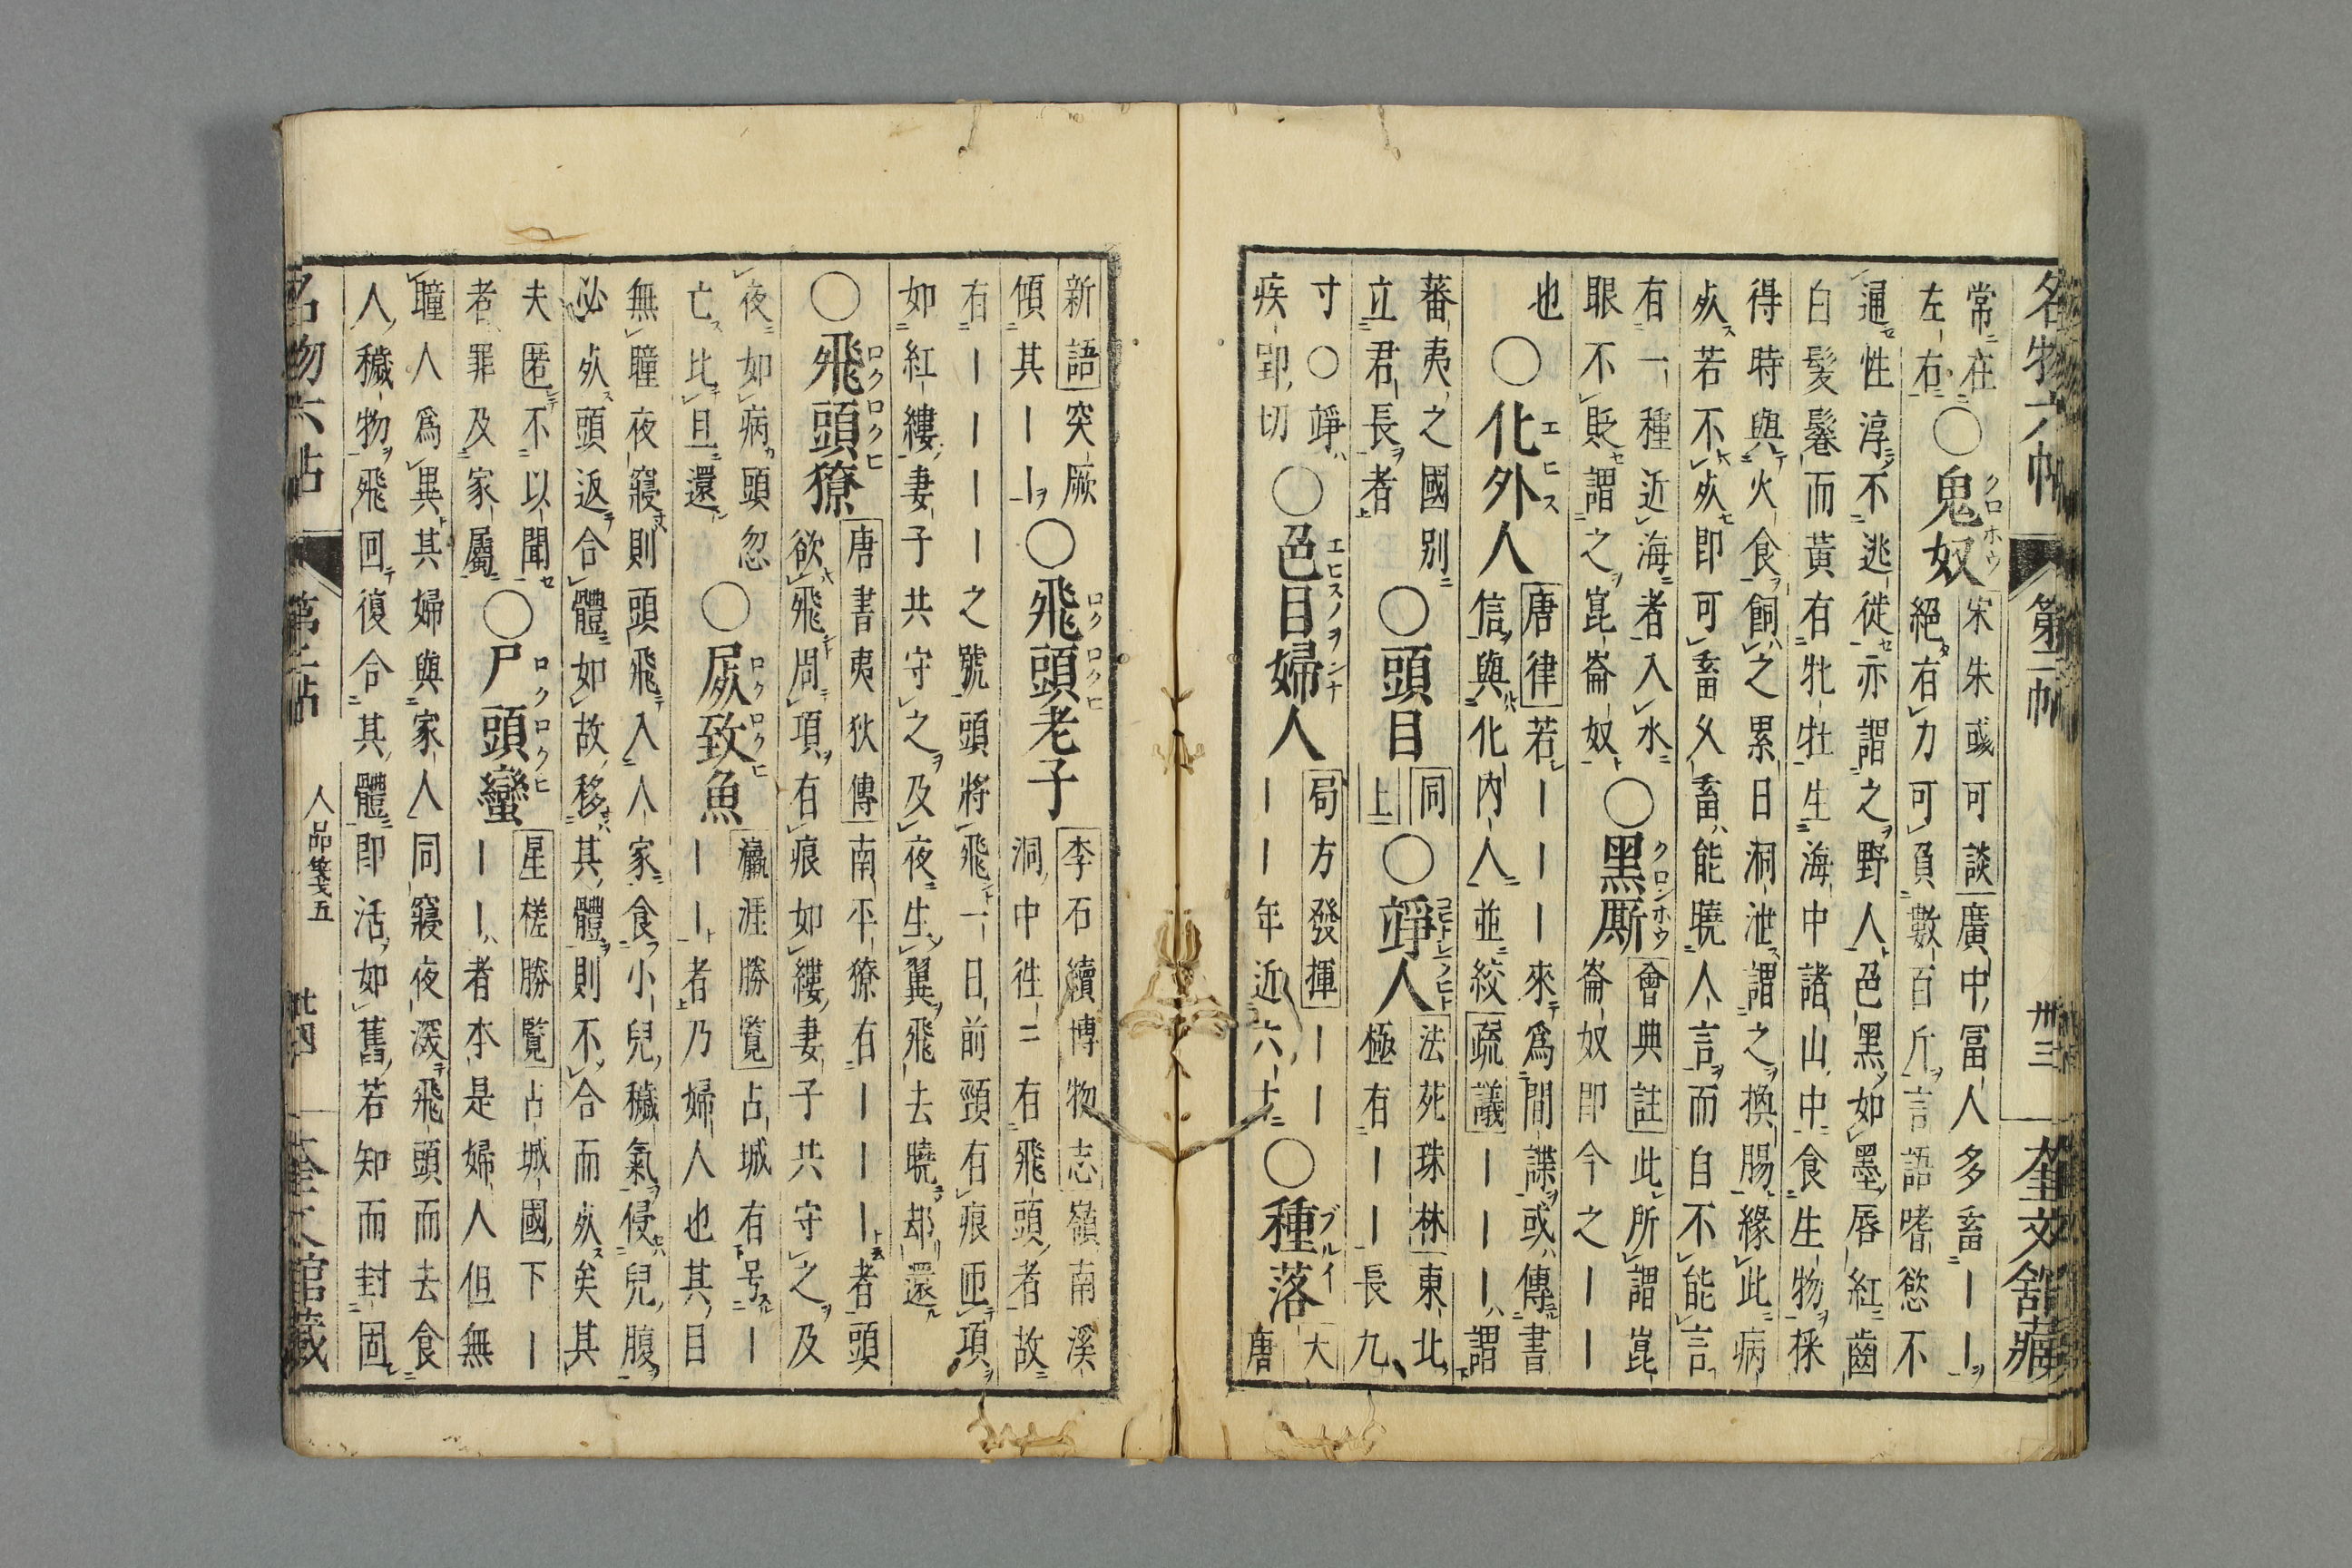 名物六帖 第二帖 卅三 奎文館藏
常在
左右
○鬼奴 クロホウ
宋朱彧可談廣中富人多畜丨丨
絕有力可負數百斤言語嗜慾不
通性淳不逃徙亦謂之野人色黑如墨唇紅齒
白髮鬈而黃有牝牡生海中諸山中食生物採
得時與火食飼之累日洞泄謂之換腸緣此病
死若不死即可畜久畜能曉人言而自不能言
有一種近海者入水
眼不貶謂之崑崙奴
○黑厮 クロンホウ
會典註此所謂崑
崙奴即今之丨丨
也
○化外人 エヒス
唐律若丨丨丨來爲間諜或傳書
信與化内人並絞疏議丨丨丨謂
蕃夷之國別
立君長者
○頭目
同
上
○竫人
法苑珠林東北
極有丨丨長九
寸○竫
疾郢切
○色目婦人 エヒスノヲンナ
局方發揮丨丨
丨丨年近六十
○種落 ブルイ
大
唐
新語突厥
傾其丨丨
○飛頭老子 ロクロクヒ
李石續博物志嶺南溪
洞中徃二有飛頭者故
有丨丨丨丨之號頭將飛一日前頸有痕匝項
如紅縷妻子共守之及夜生翼飛去曉却還
○飛頭獠 ロクロクヒ
唐書夷狄傳南平獠有丨丨丨者頭
欲飛周項有痕如縷妻子共守之及
夜如病頭忽
亡比旦還
○屍致魚 ロクロクヒ
瀛涯勝覧占城有号丨
丨丨者乃婦人也其目
無瞳夜寢則頭飛入人家食小兒穢氣侵兒腹
必死頭返合體如故移其體則不合而死矣其
夫匿不以聞
者罪及家屬
○尸頭蠻 ロクロクヒ
星槎勝覧占城國下丨
丨丨者本是婦人但無
瞳人爲異其婦與家人同寢夜深飛頭而去食
人穢物飛回復合其體即活如舊若知而封固
名物六帖 第二帖 人品箋五 卅四 奎文館藏